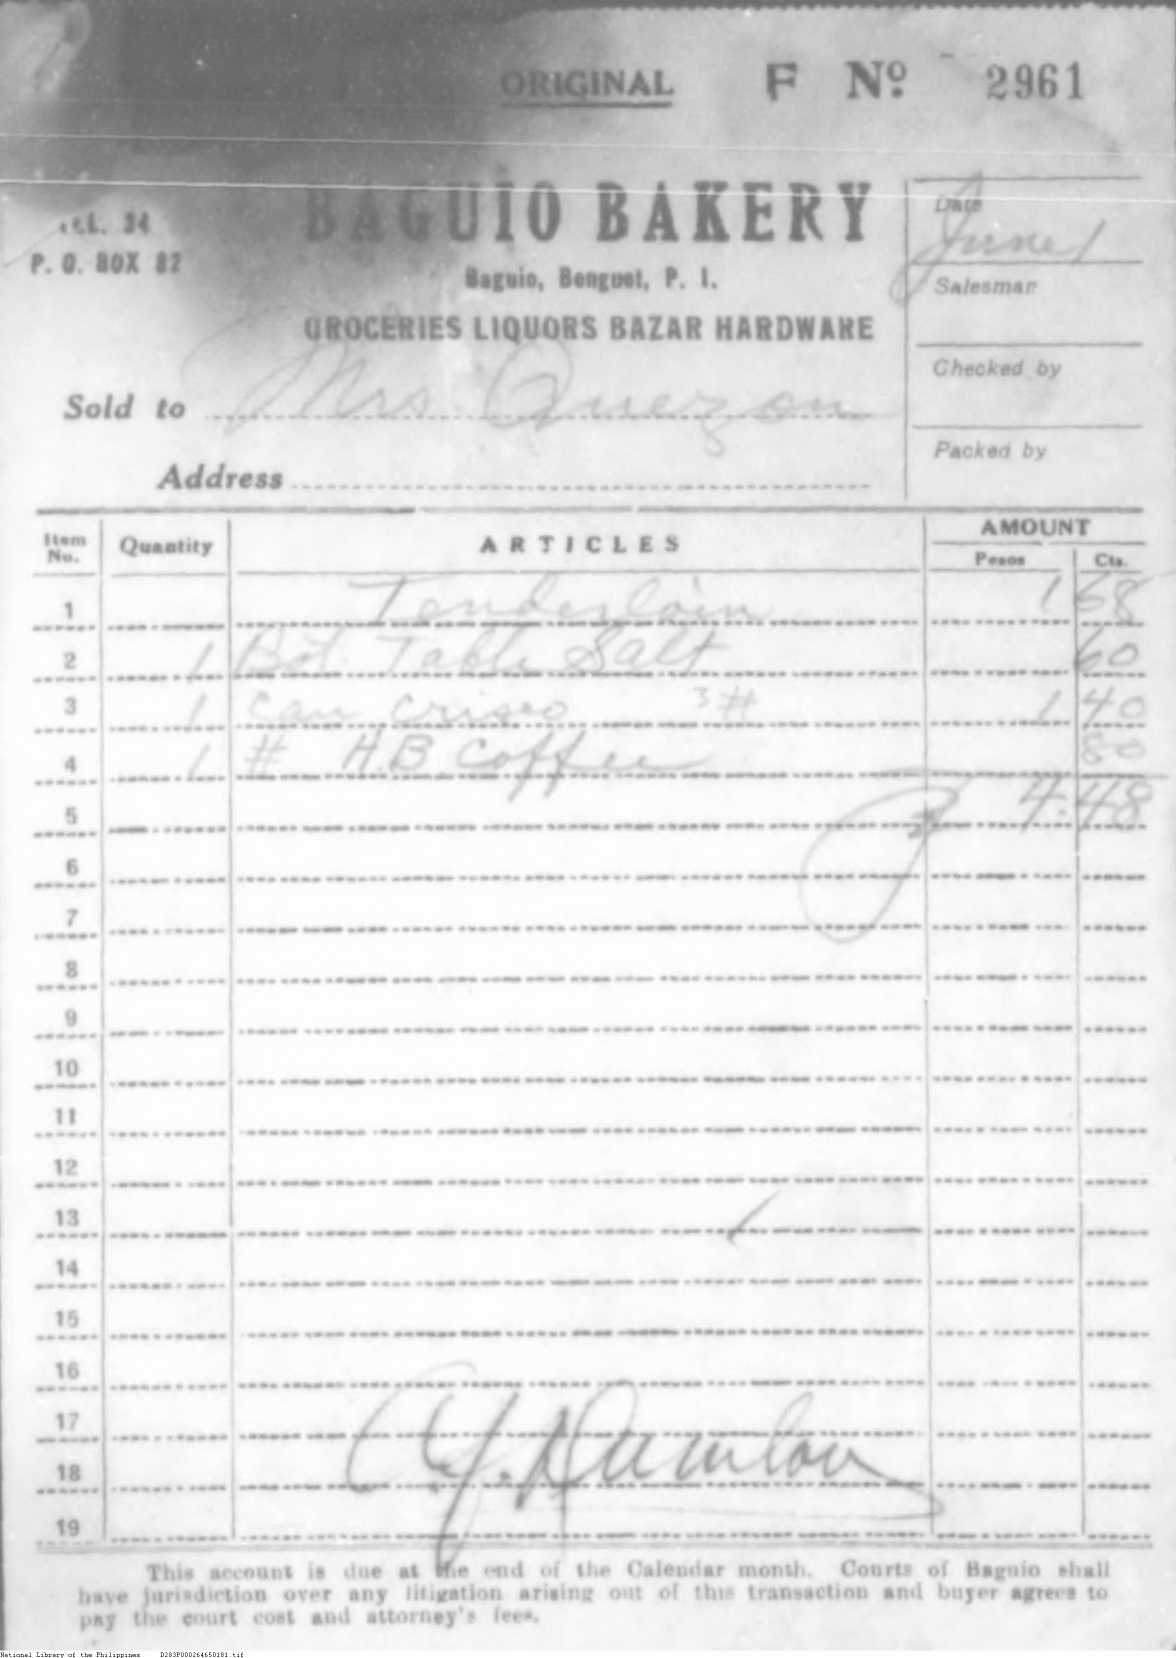 ORIGINAL F Nº 2961
BAGUIO BAKERY
TEL. 34
P. O. BOX 82
Baguio, Benguet, P. I.
GROCERIES LIQUORS BAZAR HARDWARE
Date
June 1
Salesman
Checked by
Packed by
Sold to Mrs. Quezon
Address
Item No. Quantity ARTICLES AMOUNT
Pesos Cts.
1 Tenderloin 1 68
2 1 Bot. Table Salt 60
3 1 can crisco 3# 1 40
4 1 # H.B coffee 80
5 4.48
6
7
8
9
10
11
12
13
14
15
16
17
18
19
This account is due at the end of the Calendar month. Courts of Baguio shall
have jurisdiction over any litigation arising out of this transaction and buyer agrees to
pay the court cost and attorney's fees.
National Library of the Philippines D283P000264650181.tif